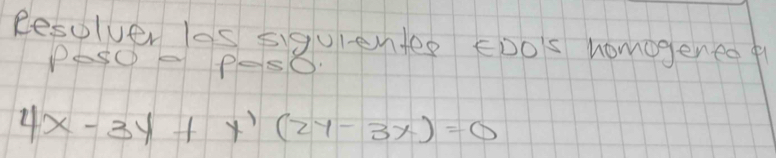 Resolver las siguientes EDO's homogeneas
paso a paso.
4x - 3y + y' (2y - 3x) = 0